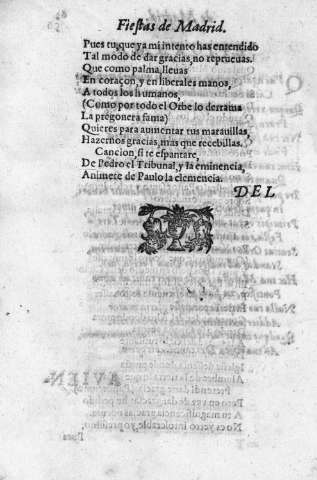 Fiestas de Madrid.
Pues tu, que ya mi intento has entendido
Tal modo de dar gracias, no reprueuas.
Que como palma, lleuas
En coraçon, y en liberales manos,
A todos los humanos,
(Como por todo el Orbe lo derrama
La pregonera fama)
Quieres para aumentar tus marauillas,
Hazernos gracias, mas que recebillas.
Cancion, si te espantare,
De Pedro el Tribunal, y la eminencia,
Animete de Paulo la clemencia.
DEL